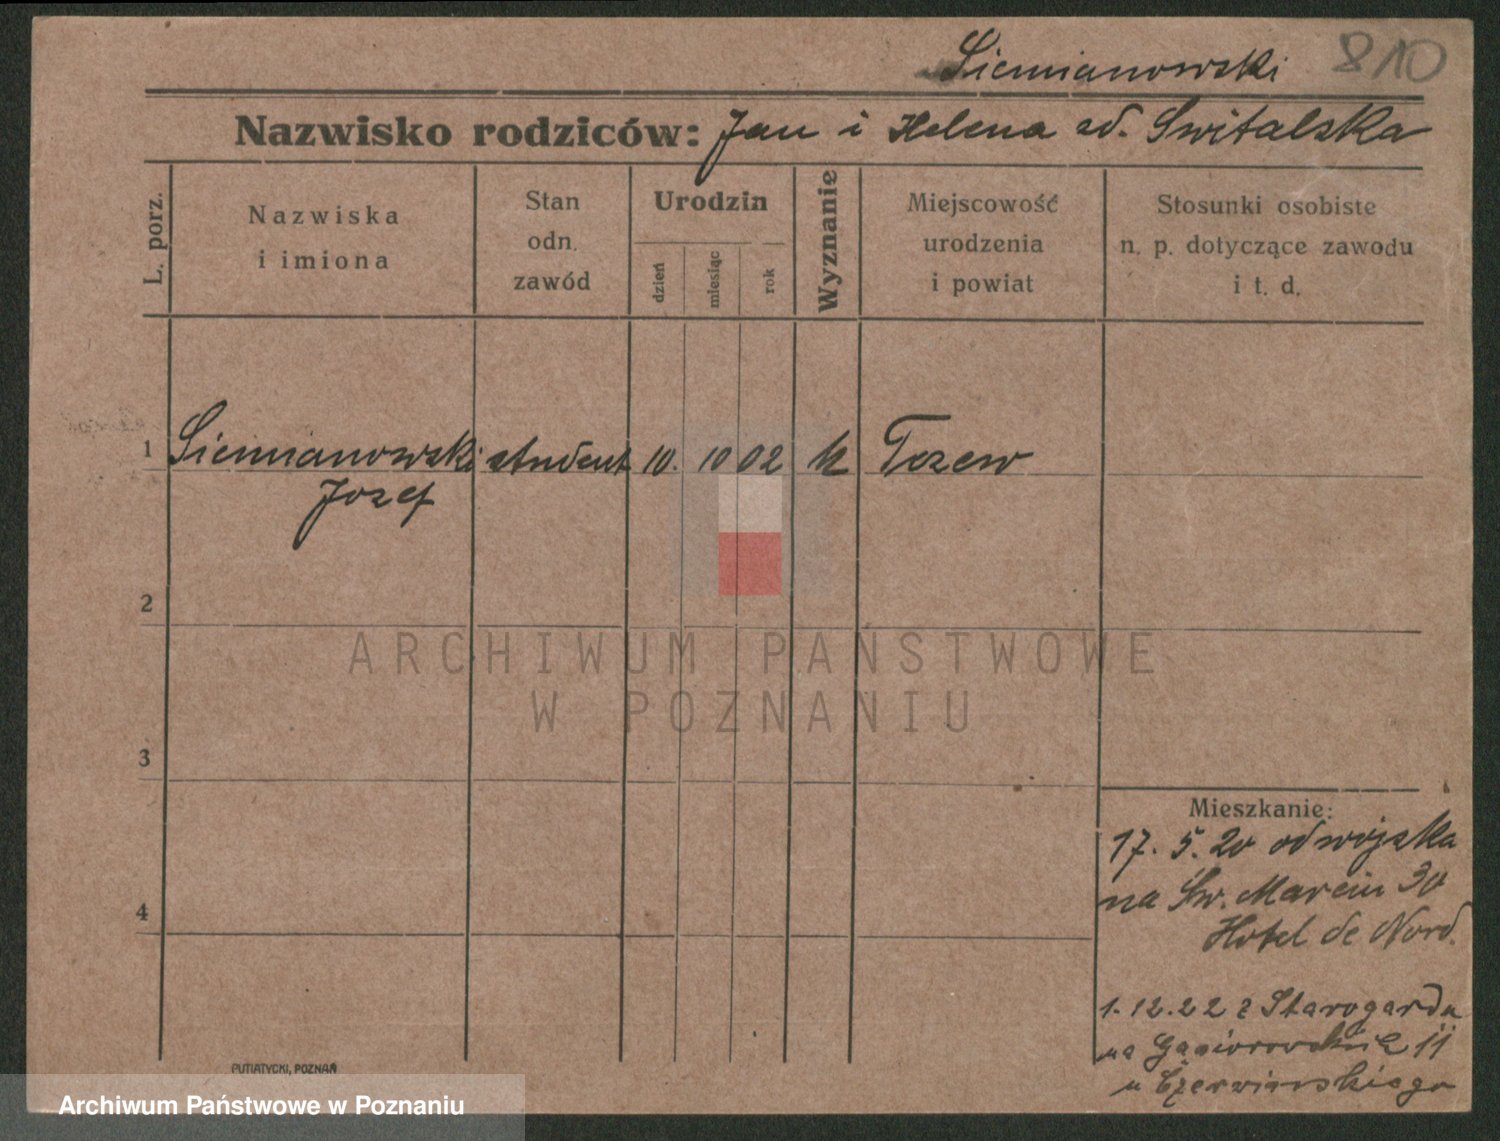 Siemianowski 810
Nazwisko rodziców: Jan i Helena zd. Switalska
L. porz.
Nazwiska
i imiona
Stan
odn.
zawód
Urodzin
dzień
miesiąc
rok
Wyznanie
Miejscowość
urodzenia
i powiat
Stosunki osobiste
n. p. dotyczące zawodu
i t. d.
1 Siemianowski student 10. 10 02 k Tczew
Jozef
2
3
4
Mieszkanie:
17. 5. 20 od wojska
na Św. Marcin 30
Hotel de Nord.
1. 12. 22 z Starogardu
na Gąsiorowskich 11
u Czerwinskiego
PUTIATYCKI, POZNAŃ
ARCHIWUM PAŃSTWOWE
W POZNANIU
Archiwum Państwowe w Poznaniu